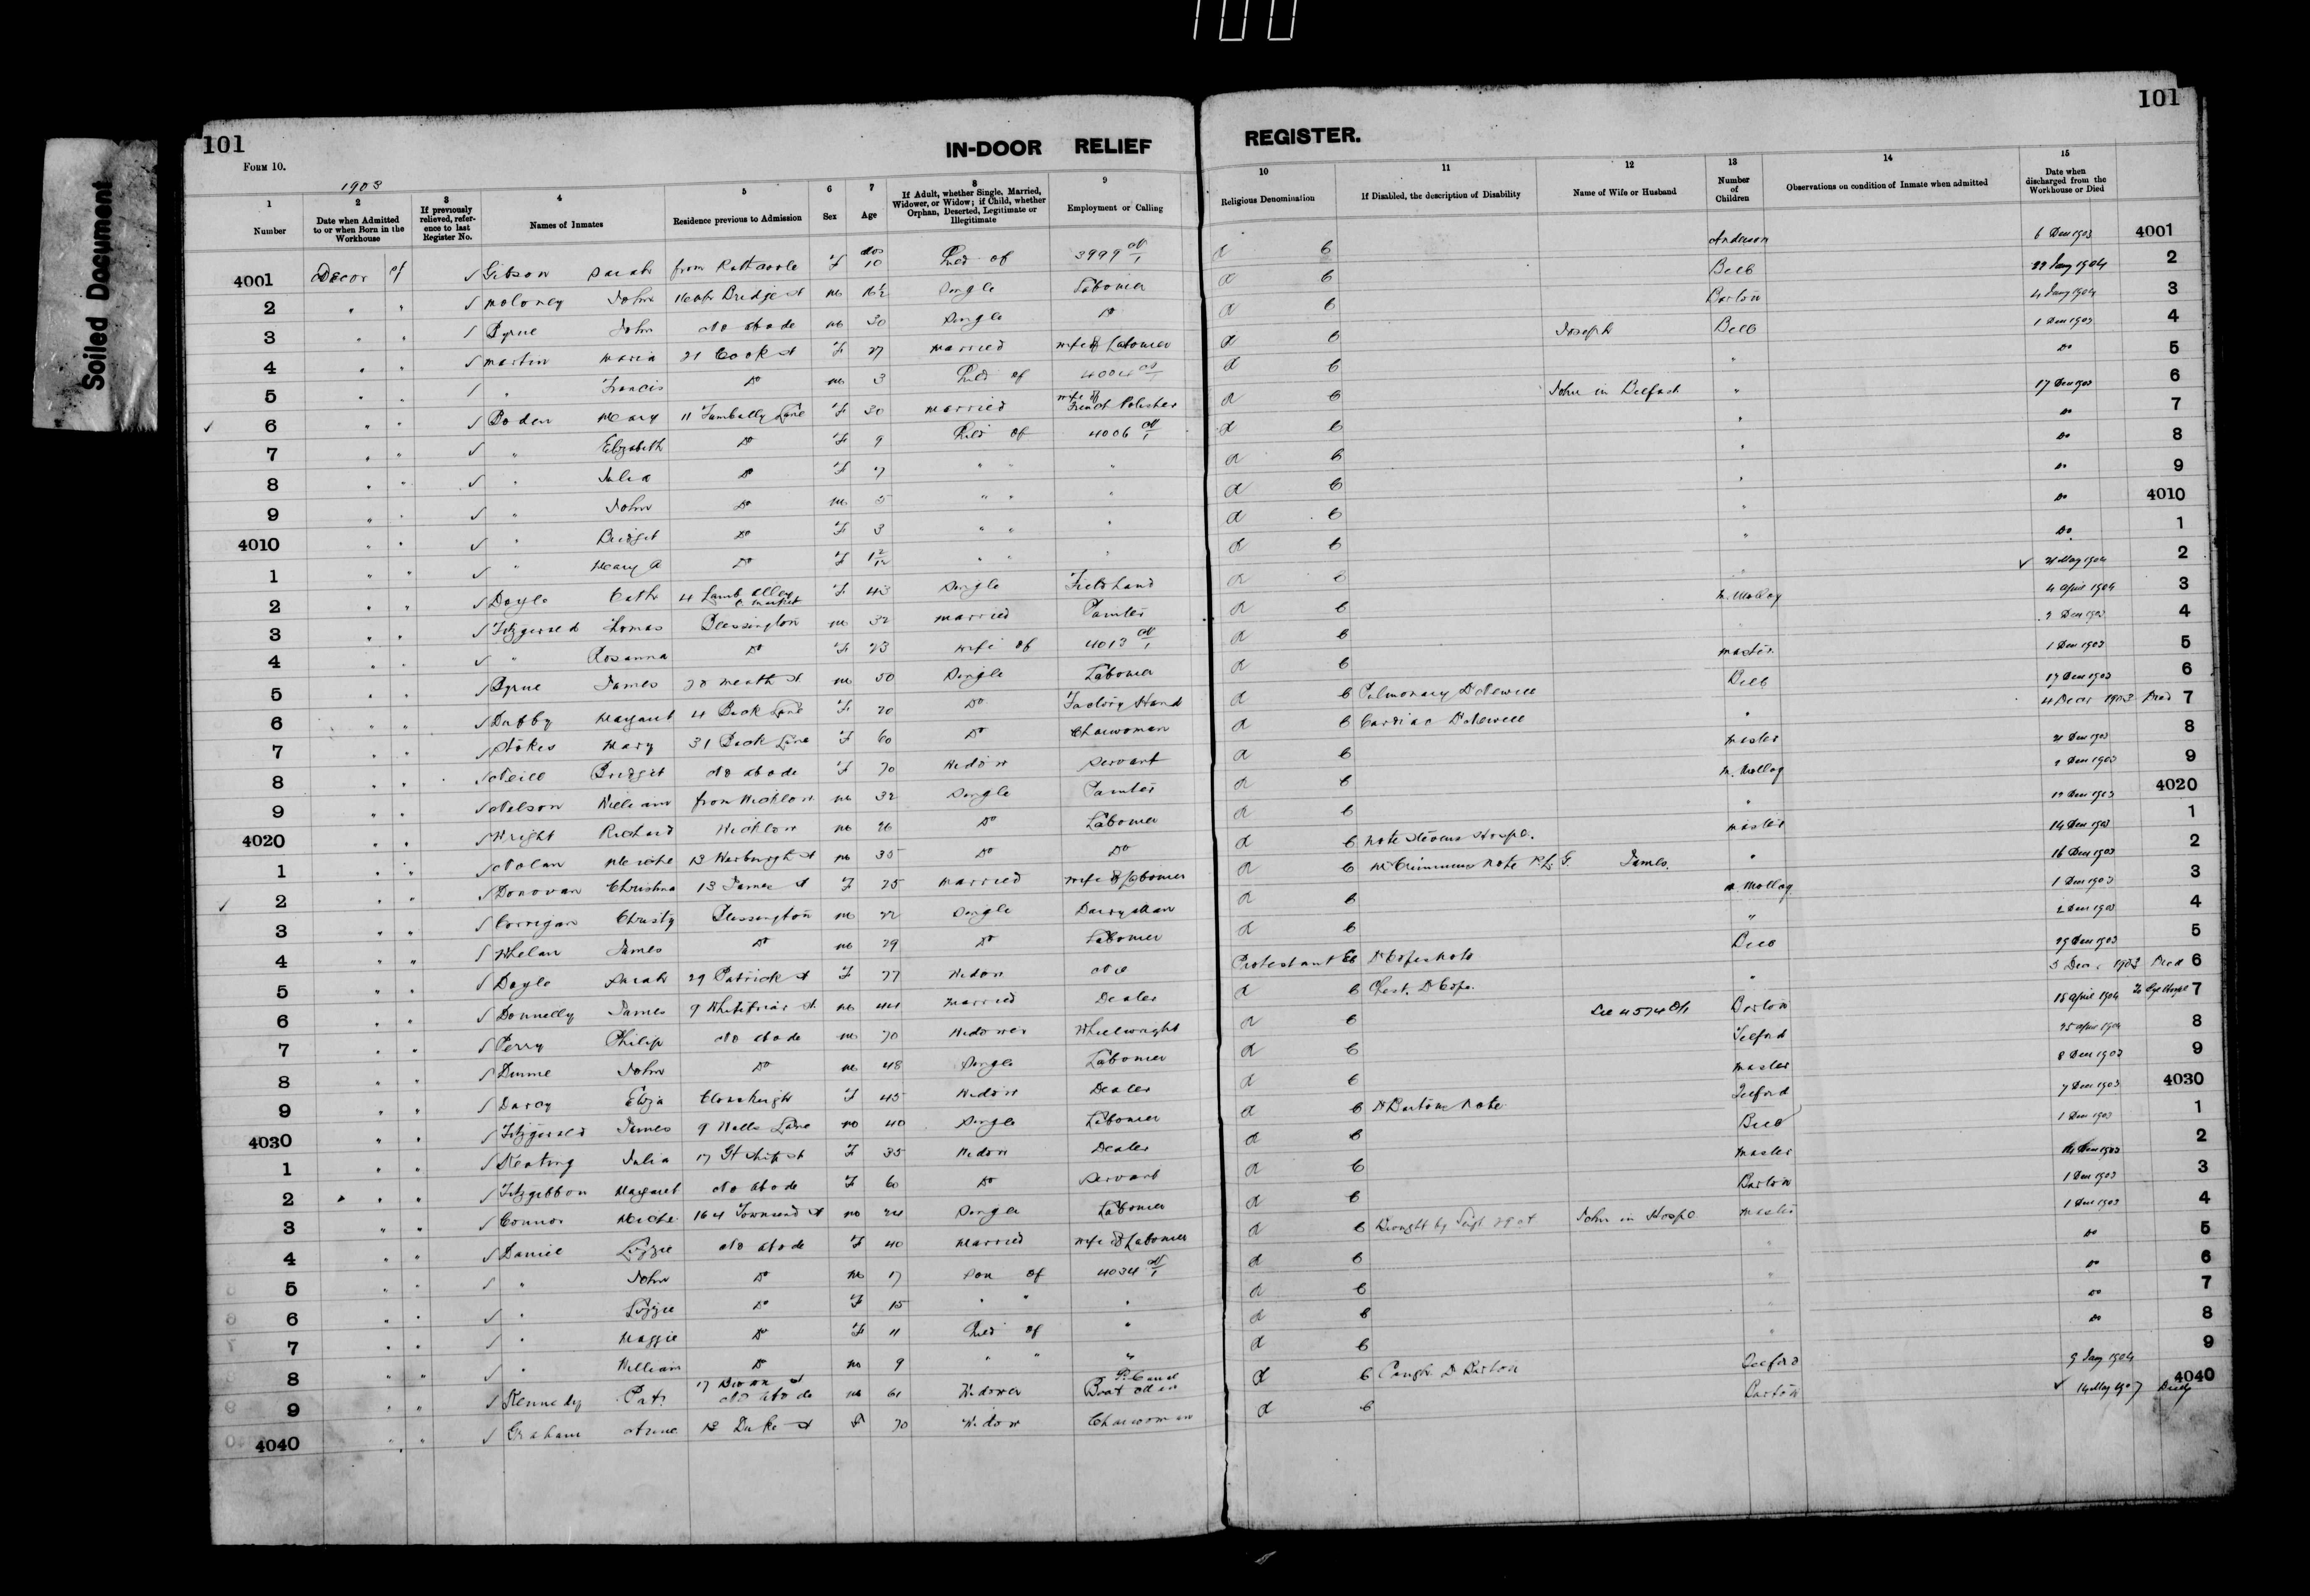 Soiled Document
101
101
IN-DOOR RELIEF REGISTER.
FORM 10.
1903
1 2 3 4 5 6 7 8 9 10 11 12 13 14 15
Number | Date when Admitted to or when Born in the Workhouse | If previously relieved, reference to last Register No. | Names of Inmates | Residence previous to Admission | Sex | Age | If Adult, whether Single, Married, Widower, or Widow; if Child, whether Orphan, Deserted, Legitimate or Illegitimate | Employment or Calling | Religious Denomination | If Disabled, the description of Disability | Name of Wife or Husband | Number of Children | Observations on condition of Inmate when admitted | Date when discharged from the Workhouse or Died
4001 Gibson Sarah from Rathcoole F mos 10 Child of 3999 R C Anderson 6 Dec 1903 4001
2 " " Moloney John Bridge st M 16½ Single Labourer R C Bell 22 Jany 1904 2
3 " " Byrne John No abode M 30 Single Do R C Barton 4 Jany 1904 3
4 " " Martin Maria 21 Cook st F 27 Married wife of Labourer R C Joseph Bell 1 Dec 1903 4
5 " " " Francis Do M 3 Child of 4004 R C " Do 5
6 " " Boden Mary 11 Fumbally Lane F 30 Married wife of French Polisher R C John in Belfast " 17 Dec 1903 6
7 " " " Elizabeth Do F 9 Child of 4006 R C " Do 7
8 " " " Julia Do F 7 " " " R C " Do 8
9 " " " John Do M 5 " " " R C " Do 9
4010 " " " Bridget Do F 3 " " " R C " Do 4010
1 " " " Mary A Do F 1 2/12 " " " R C " Do 1
2 " " Doyle Cath 4 Lamb Alley C. Market F 43 Single Field hand R C " 21 May 1904 2
3 " " Fitzgerald Thomas Blessington M 32 Married Painter R C M. Molloy 4 April 1904 3
4 " " " Rosanna Do F 23 Wife of 4013 R C 2 Dec 1903 4
5 " " Byrne James 20 Meath st M 50 Single Labourer R C Master 1 Dec 1903 5
6 " " Dubby Margaret 4 Back Lane F 20 Do Factory Hand R C Pulmonary Dr Newell Bell 17 Dec 1903 6
7 " " Stokes Mary 31 Back Lane F 60 Do Charwoman R C Cardiac Dr Newell " 4 Decr 1903 Died 7
8 " " Neill Bridget No abode F 70 Widow Servant R C Master 21 Dec 1903 8
9 " " Nelson William from Wicklow M 32 Single Painter R C M. Molloy 2 Dec 1903 9
4020 " " Wright Richard Wicklow M 26 Do Labourer R C " 12 Dec 1903 4020
1 " " Nolan Michl 13 Werburgh st M 35 Do Do R C Note Stevens Hospl. Master 14 Dec 1903 1
2 " " Donovan Christina 13 James st F 25 Married wife of Labourer R C note James " 16 Dec 1903 2
3 " " Corrigan Christy Blessington M 22 Single Dairyman R C M. Molloy 1 Dec 1903 3
4 " " Whelan James Do M 29 Do Labourer R C " 2 Dec 1903 4
5 " " Doyle Sarah 29 Patrick st F 77 Widow Nil Protestant Ch Dr Copes Note Bell 29 Dec 1903 5
6 " " Donnelly James 9 Whitefriar st M 44 Married Dealer R C Chest. Dr Cope. " 5 Decr 1903 Died 6
7 " " Perry Philip No abode M 70 Widower Wheelwright R C See 4574 Barton 18 April 1904 To Eye Hospl 7
8 " " Dunne John Do M 48 Single Labourer R C Telford 25 Apr 1904 8
9 " " Darcy Eliza F 45 Widow Dealer R C Master 8 Dec 1903 9
4030 " " Fitzgerald James 9 Halls Lane M 40 Single Labourer R C Dr Bartons Note Telford 7 Dec 1903 4030
1 " " Keating Julia 17 st F 35 Widow Dealer R C Bell 1 Dec 1903 1
2 " " Fitzgibbon Margaret No abode F 60 Do Servant R C Master Dec 1903 2
3 " " Connor Michl 164 Townsend st M 24 Single Labourer R C Barton 1 Dec 1903 3
4 " " Daniel Lizzie No abode F 40 Married wife of Labourer R C Brought by Sergt 29 A John in Hospl Master 1 Dec 1903 4
5 " " " John Do M 17 Son of 4034 R C " Do 5
6 " " " Lizzie Do F 15 " " " R C " Do 6
7 " " " Maggie Do F 11 Child of " R C Do 7
8 " " " William Do M 9 " " " R C " Do 8
9 " " Kennedy Pat 17 st No abode M 61 Widower Canal Boat Man R C Cough Dr Barton Telford 9 Jany 1904 9
4040 " " Graham Anne 13 Duke st F 70 Widow Charwoman R C Barton 14 May 1907 4040